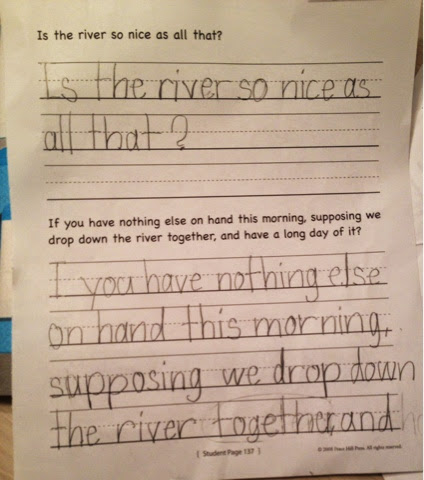 Is the river so nice as all that?
Is the river so nice as
all that?
If you have nothing else on hand this morning, supposing we
drop down the river together, and have a long day of it?
I you have nothing else
on hand this morning,
supposing we drop down
the river together, and
{ Student Page 157 }
© 2009 Peace Hill Press. All rights reserved.